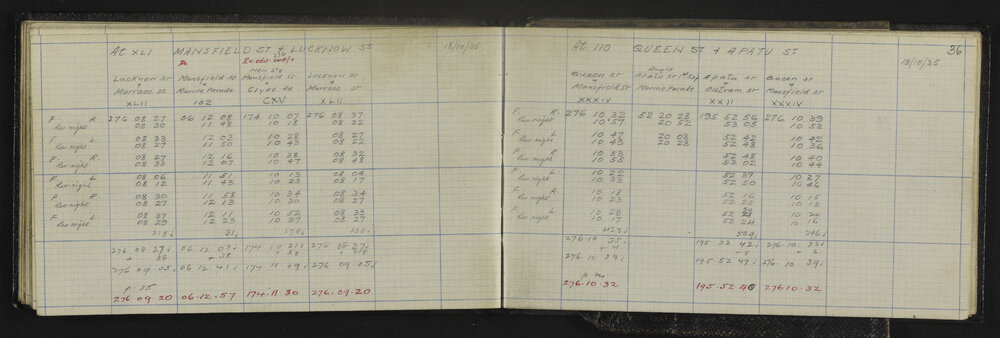 At XLI MANSFIELD St + LUCKNOW St 18/10/35
Lucknow St Mansfield St Mansfield St Lucknow St
+ + + +
Murrace St Marine Parade Clyde Rd Murrace St
XLII 102 CXV XLII
F. R 276 08 27 06 12 08 174 10 07 276 08 37
Rev night 08 30 11 48 10 18 08 22
F L 08 33 12 03 10 28 08 27
Rev night 08 27 11 50 10 43 08 22
F. R. 08 27 12 16 10 38 08 32
Rev night 08 33 12 07 10 47 08 48
F L 08 06 11 51 10 13 08 04
Rev night 08 12 11 43 10 23 08 17
F R 08 30 11 58 10 34 08 34
Rev night 08 27 12 13 10 30 08 27
F L 08 37 12 11 10 52 08 33
Rev night 08 29 12 23 10 37 08 27
318 31 370 330
276 08 27 06 12 03 174 10 31 276 08 27
+ 38 + 38 + 38 + 38
276 09 05 06.12.41 174 11 09 276.09.05
p. 25
276.09.20 06.12.57 174.11.30 276.09.20
At 110 QUEEN St + APATU St 36
18/10/35
Queen St Angle Apatu St Queen St
+ Apatu St + +
Mansfield St Marine Parade Outram St Mansfield St
XXXIV XXII XXXIV
F. R. 276 10 32 52 20 28 195 52 56 276 10 39
Rev night 10 57 20 52 53 05 10 53
F L 10 47 20 08 52 42 10 42
Rev night 10 43 20 23 52 48 10 36
F R 10 53 52 48 10 40
Rev night 10 55 53 02 10 44
F L 10 22 52 39 10 27
Rev night 10 33 52 50 10 46
F R 10 18 52 15 10 15
Rev night 10 23 52 25 10 13
F L 10 28 10 20
Rev night 10 17 52 24 10 16
276.10 35 195 52 42 276.10.33
276.10 39 195.52 47 276.10 39
276.10.32 195.52.40 276.10.32